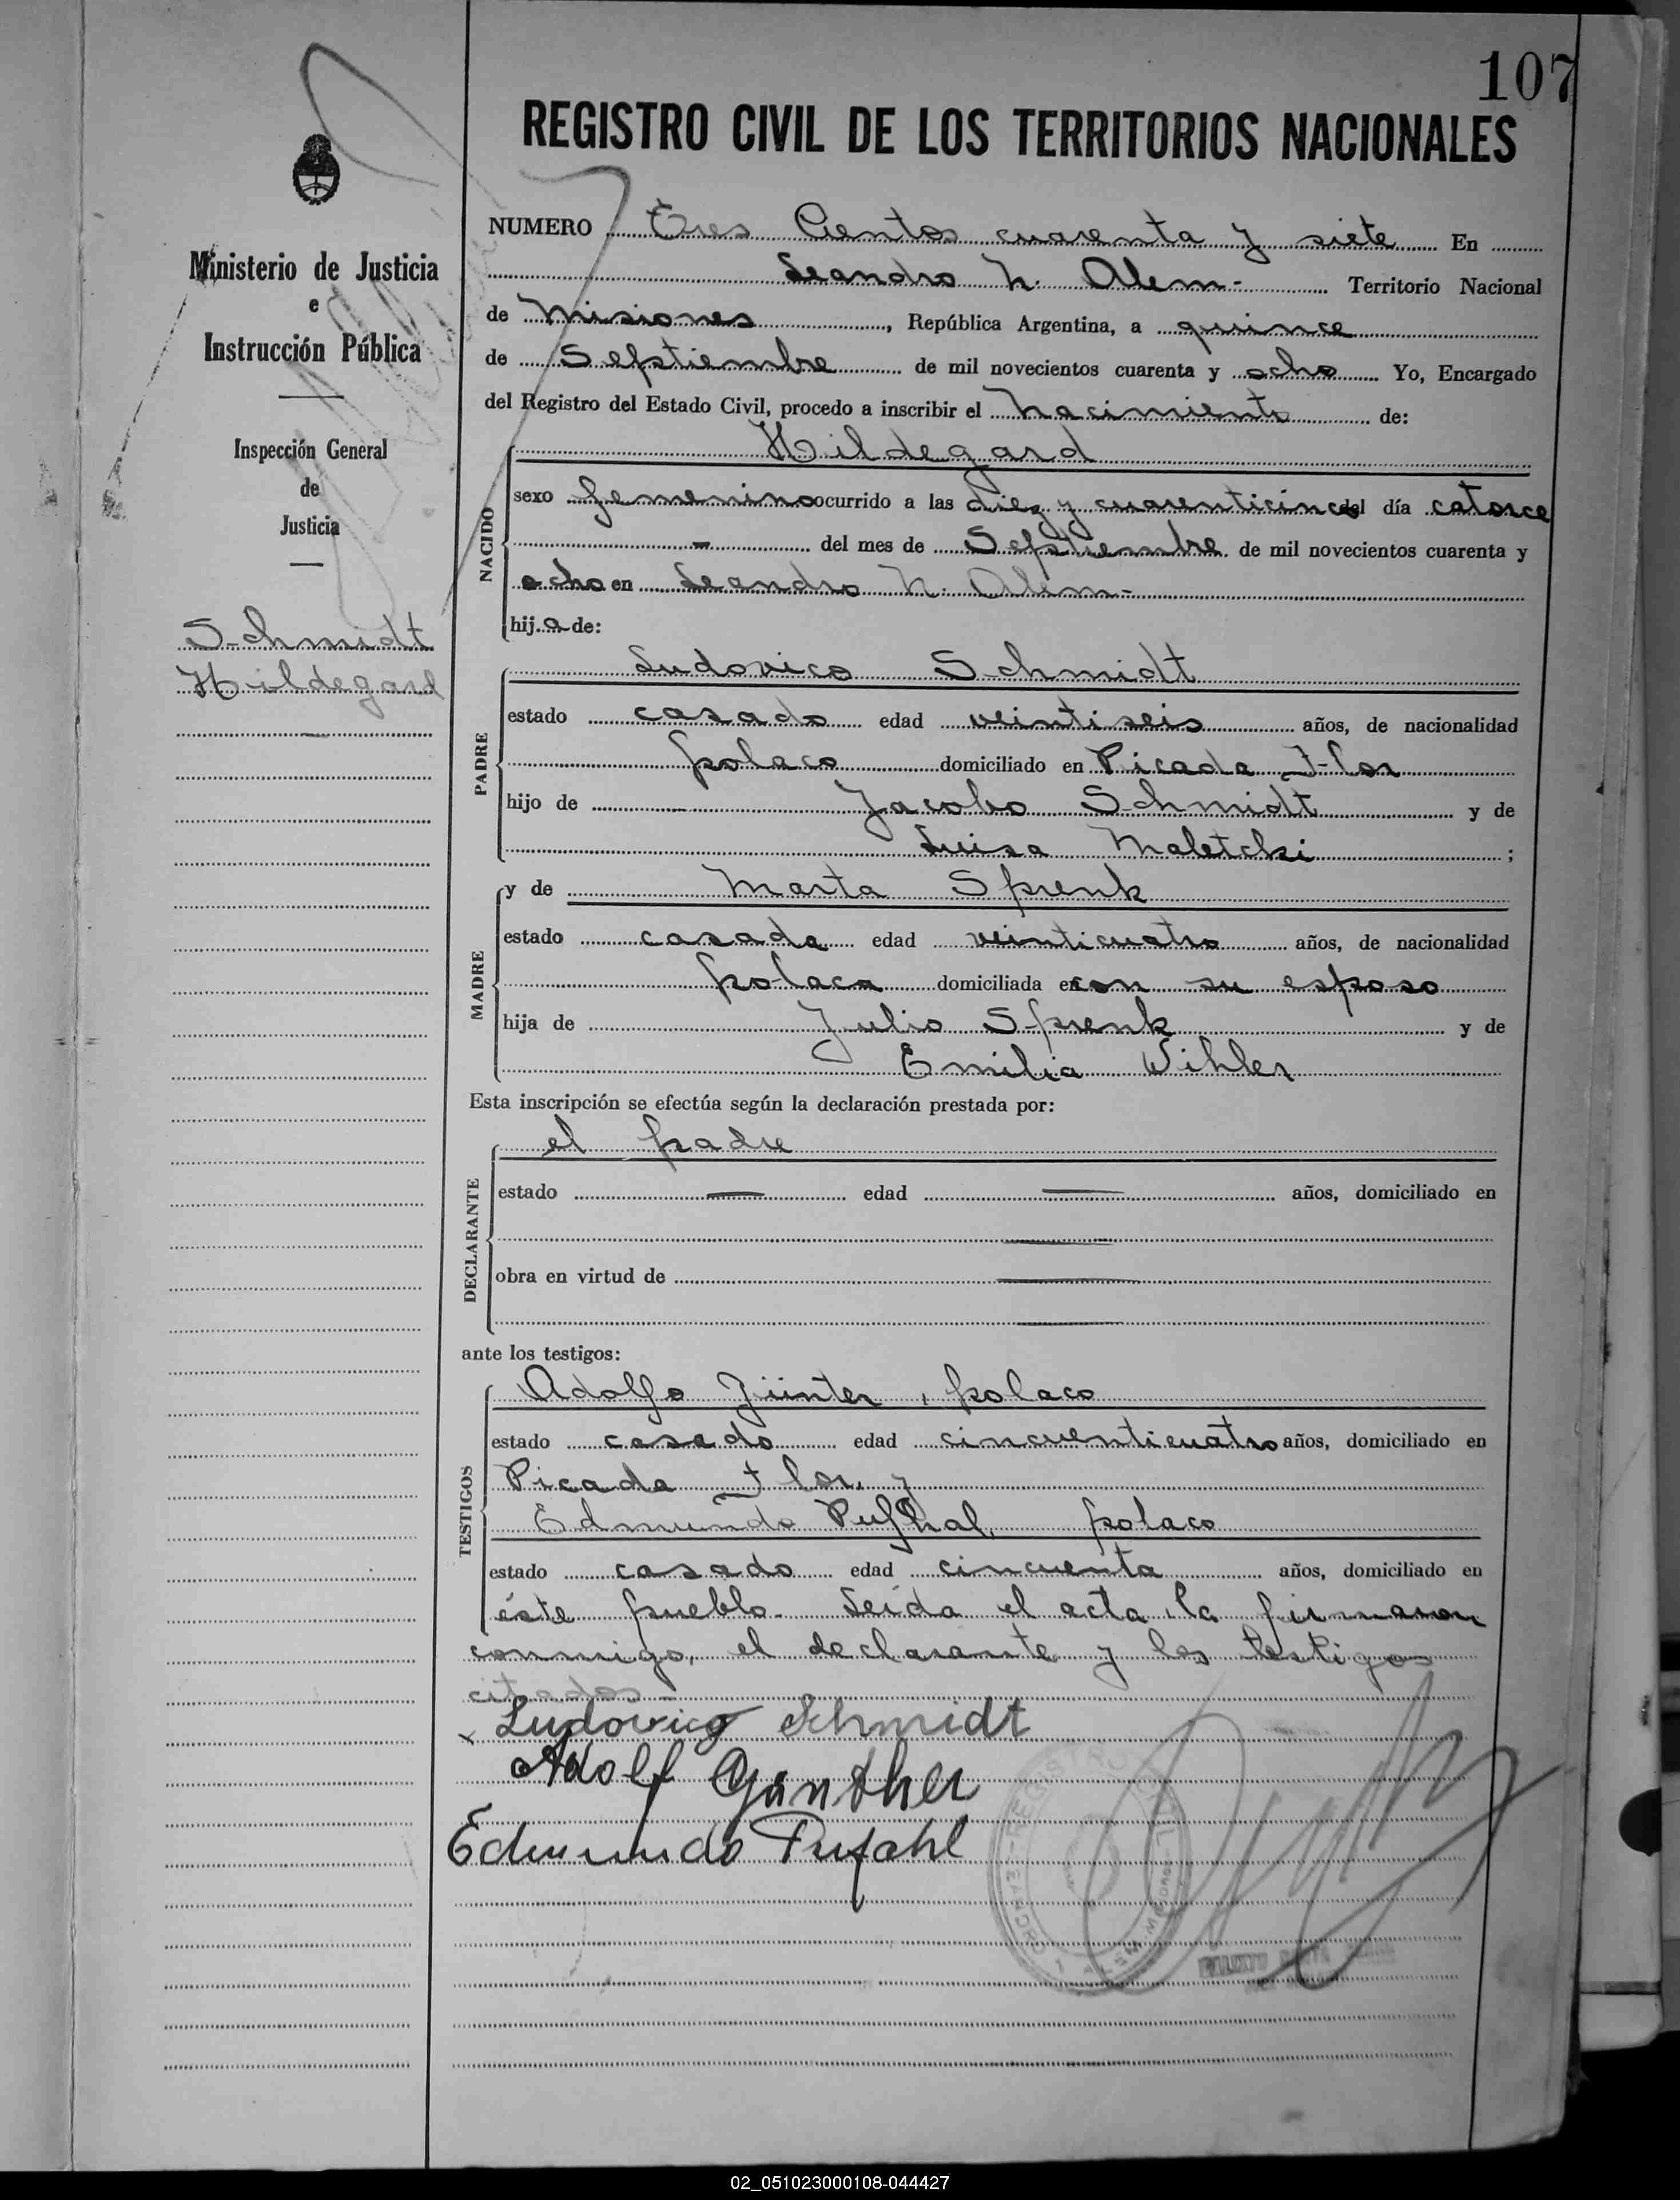 107
REGISTRO CIVIL DE LOS TERRITORIOS NACIONALES
Ministerio de Justicia
e
Instrucción Pública
Inspección General
de
Justicia
Schmidt
Hildegard
NUMERO Tres Cientos cuarenta y siete En
Leandro N. Alem.- Territorio Nacional
de Misiones, República Argentina, a quince
de Septiembre de mil novecientos cuarenta y ocho Yo, Encargado
del Registro del Estado Civil, procedo a inscribir el Nacimiento de:
Hildegard
NACIDO
sexo femenino ocurrido a las diez y cuarenticinco del día catorce
- del mes de Septiembre de mil novecientos cuarenta y
ocho en Leandro N. Alem.-
hij a de:
PADRE
Ludovico Schmidt
estado casado edad veintiseis años, de nacionalidad
polaco domiciliado en Picada Flor
hijo de Jacobo Schmidt y de
Luisa Maletcki ;
MADRE
y de Marta Sprenk
estado casada edad veinticuatro años, de nacionalidad
polaca domiciliada en con su esposo
hija de Julio Sprenk y de
Emilia Wihler
Esta inscripción se efectúa según la declaración prestada por:
DECLARANTE
el padre
estado — edad — años, domiciliado en
—
obra en virtud de —
—
ante los testigos:
TESTIGOS
Adolfo Jünter, polaco
estado casado edad cincuenticuatro años, domiciliado en
Picada Flor, y
Edmundo Pufhal, polaco
estado casado edad cincuenta años, domiciliado en
éste pueblo. Leída el acta, la firmaron
conmigo, el declarante y los testigos
citados.-
x Ludovico Schmidt
Adolf Günther
Edmundo Pufahl
REGISTRO CIVIL
02_051023000108-044427